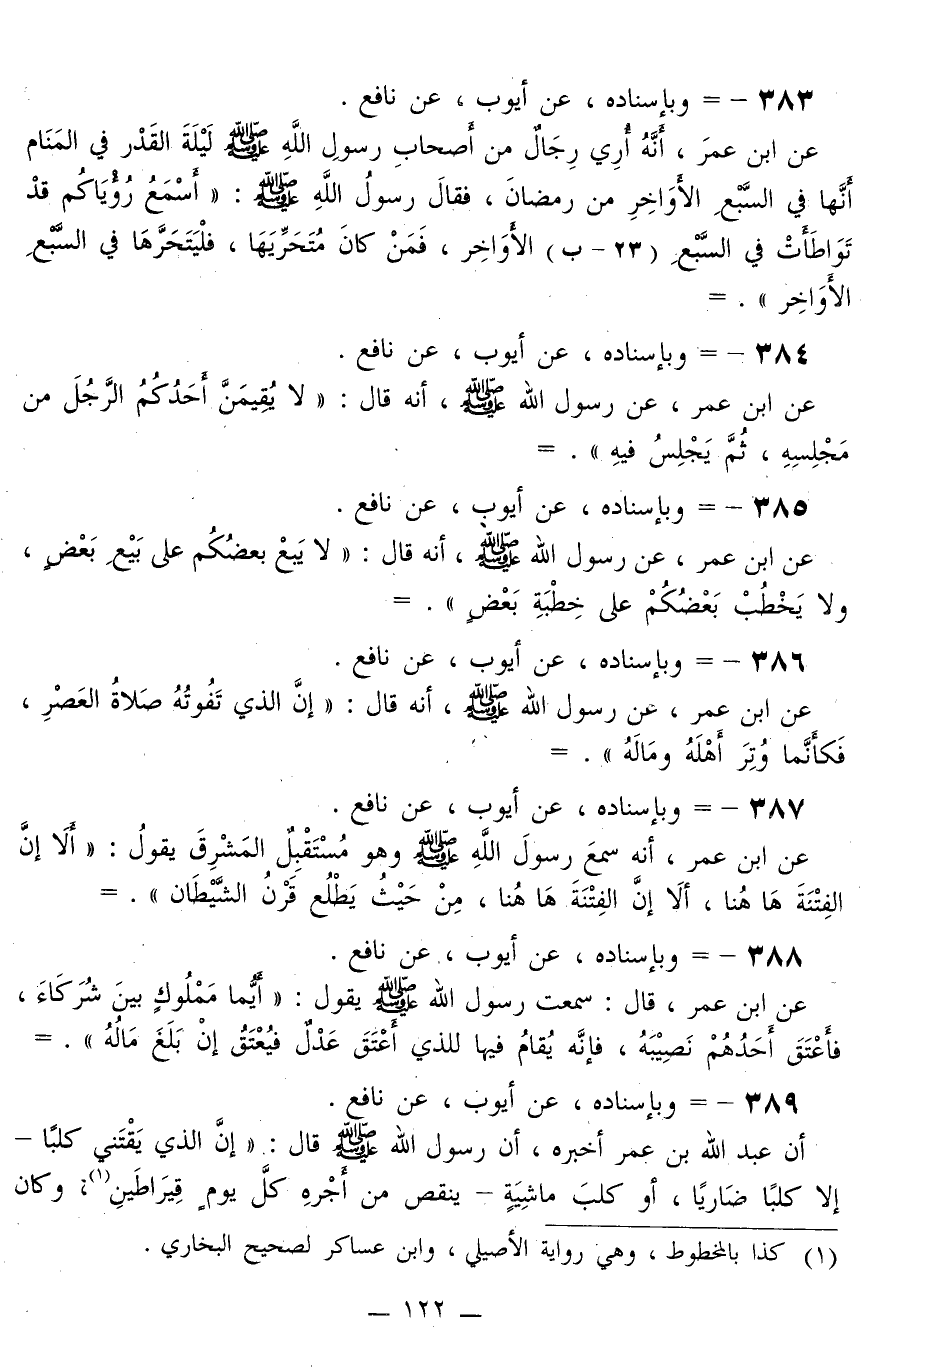 ٣٨٣ – = وبإسناده ، عن أيوب ، عن نافع .
عن ابن عمرَ ، أَنَّهُ أُرِي رِجَالٌ من أَصحابِ رسولِ اللَّهِ ﷺ لَيْلَةَ القَدْر في المَنَام
أَنَّها في السَّبْعِ الأَوَاخِرِ من رمضانَ ، فقالَ رسولُ اللَّهِ ﷺ : « أَسْمَعُ رُؤْيَاكُم قدْ
تَوَاطَأَتْ في السَّبْعِ (٢٣ - ب) الأَوَاخِر ، فَمَنْ كانَ مُتَحَرِّيَهَا ، فلْيَتَحَرَّهَا في السَّبْعِ
الأَوَاخِر » . =
٣٨٤ – = وبإسناده ، عن أيوب ، عن نافع .
عن ابن عمر ، عن رسول الله ﷺ ، أنه قال : « لا يُقِيمَنَّ أَحَدُكُمُ الرَّجُلَ من
مَجْلِسِهِ ، ثُمَّ يَجْلِسُ فيهِ » . =
٣٨٥ – = وبإسناده ، عن أيوب ، عن نافع .
عن ابن عمر ، عن رسول الله ﷺ ، أنه قال : « لا يَبعْ بعضُكُم على بَيْعِ بَعْضٍ ،
ولا يَخْطُبْ بَعْضُكُمْ على خِطْبَةِ بَعْضٍ » . =
٣٨٦ – = وبإسناده ، عن أيوب ، عن نافع .
عن ابن عمر ، عن رسول الله ﷺ ، أنه قال : « إنَّ الذي تَفُوتُهُ صَلاةُ العَصْرِ ،
فَكأَنَّما وُتِرَ أَهْلَهُ ومَالَهُ » . =
٣٨٧ – = وبإسناده ، عن أيوب ، عن نافع .
عن ابن عمر ، أنه سمعَ رسولَ اللَّهِ ﷺ وهو مُسْتَقْبِلٌ المَشْرِقَ يقولُ : « أَلَا إنَّ
الفِتْنَةَ هَا هُنا ، ألَا إنَّ الفِتْنَةَ هَا هُنا ، مِنْ حَيْثُ يَطْلُع قَرْنُ الشَّيْطَان » . =
٣٨٨ – = وبإسناده ، عن أيوب ، عن نافع .
عن ابن عمر ، قال : سمعت رسول الله ﷺ يقول : « أَيُّما مَمْلُوكٍ بينَ شُرَكَاءَ ،
فأَعْتَقَ أَحَدُهُمْ نَصِيْبَهُ ، فإنَّه يُقامُ فيها للذي أَعْتَقَ عَدْلٌ فيُعْتَقُ إنْ بَلَغَ مَالُهُ » . =
٣٨٩ – = وبإسناده ، عن أيوب ، عن نافع .
أن عبد الله بن عمر أخبره ، أن رسول الله ﷺ قال : « إنَّ الذي يَقْتَني كلبًا –
إلا كلبًا ضَاريًا ، أو كلبَ ماشِيَةٍ – ينقص من أَجْرِهِ كلَّ يومٍ قِيرَاطَينِ(١)؛ وكان
(١) كذا بالمخطوط ، وهي رواية الأصيلي ، وابن عساكر لصحيح البخاري .
– ١٢٢ –